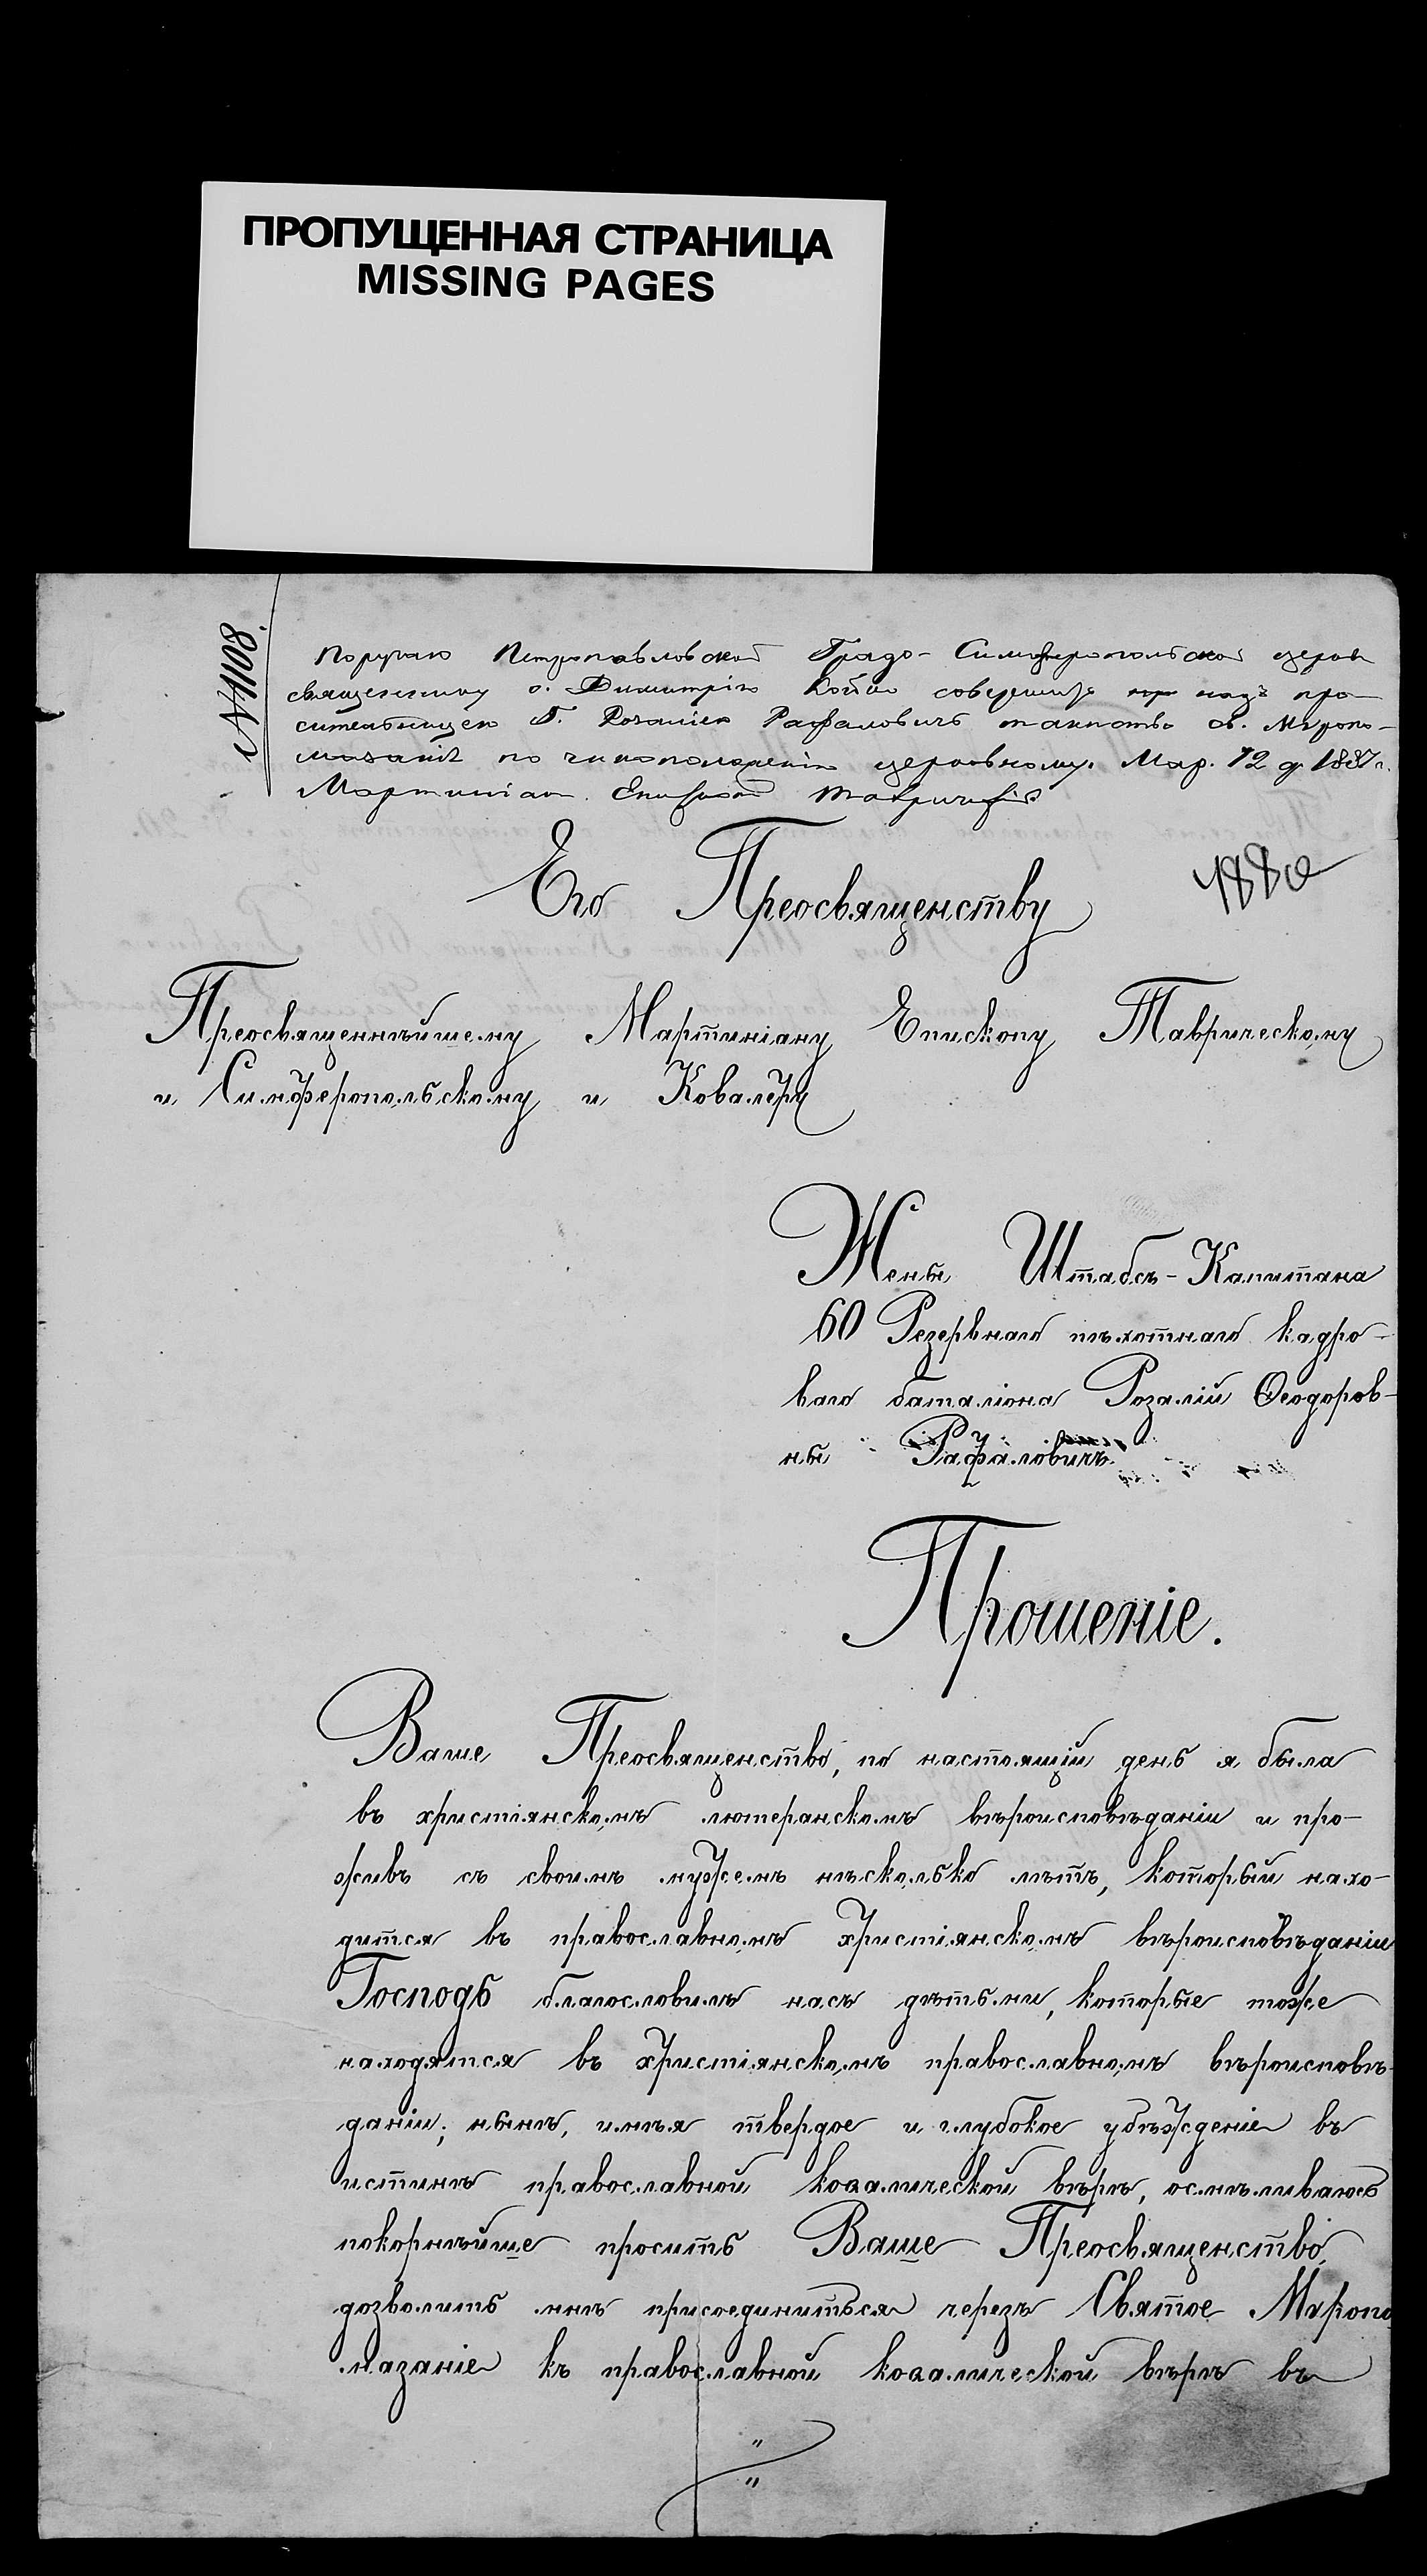 ПРОПУЩЕННАЯ СТРАНИЦА
MISSING PAGES
№ 1108.
Поручаю Петропавловской Градо-Симферопольской церкви
священнику о. Димитрію Койко совершить надъ про-
сительницею Розаліею Рафаловичъ таинство св. Мѵропо-
мазанія по чиноположенію церковному. Мар. 12 д. 1887 г.
Мартиніан. Епископъ Таврическій
Его Преосвященству
1880
Преосвященнѣйшему Мартиніану Епископу Таврическому
и Симферопольскому и Ковалеру
Жены Штабсъ-Капитана
60 Резервнаго пѣхотнаго кадро-
ваго баталіона Розаліи Ѳеодоров-
ны Рафаловичъ
Прошеніе.
Ваше Преосвященство, по настоящій день я была
въ христіянскомъ лютеранскомъ вѣроисповѣданіи и про-
живъ съ своимъ мужемъ нѣсколько лѣтъ, который нахо-
дится въ православномъ христіянскомъ вѣроисповѣданіи
Господь благословилъ насъ дѣтьми, которые тоже
находятся въ христіянскомъ православномъ вѣроисповѣ-
даніи; нынѣ, имѣя твердое и глубокое убѣжденіе въ
истинѣ православной коѳалической вѣрѣ, осмѣливаюсь
покорнѣйше просить Ваше Преосвященство,
дозволить мнѣ присоединиться черезъ Святое Мѵропо
мазаніе къ православной коѳалической вѣрѣ въ